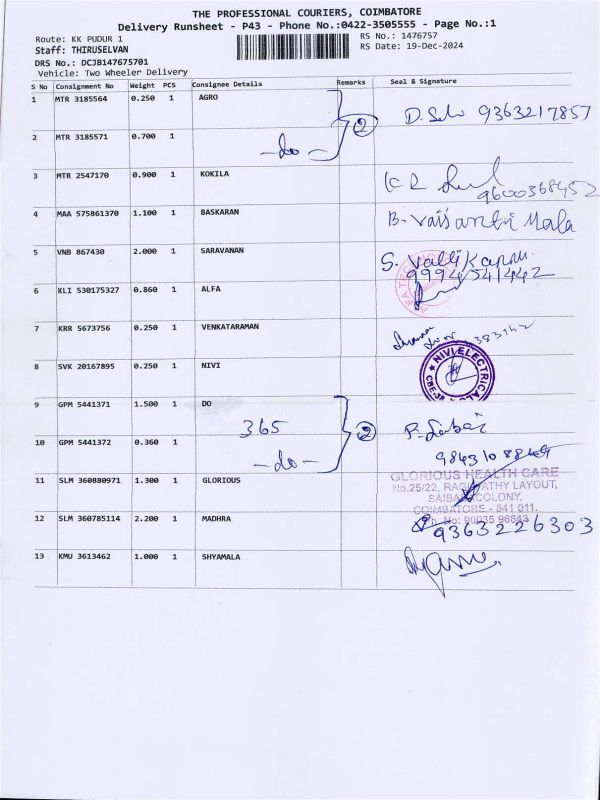 THE PROFESSIONAL COURIERS, COIMBATORE
Delivery Runsheet - P43 - Phone No.:0422-3505555 - Page No.:1
Route: KK PUDUR 1
RS No.: 1476757
Staff: THIRUSELVAN
RS Date: 19-Dec-2024
DRS No.: DCJB147675701
Vehicle: Two Wheeler Delivery
S No Consignment No Weight PCS Consignee Details Remarks Seal & Signature
1 MTR 3185564 0.250 1 AGRO 2 9363217857
2 MTR 3185571 0.700 1 -do-
3 MTR 2547170 0.900 1 KOKILA 9600368452
4 MAA 575861170 1.100 1 BASKARAN B. Vaisantri Mala
5 VNB 867430 2.000 1 SARAVANAN S. Valli Kannu
9994541442
6 KLI 530175327 0.860 1 ALFA
7 KRR 5673756 0.250 1 VENKATARAMAN
8 SVK 20167895 0.250 1 NIVI NIVI ELECTRICAL
9 GPM 5441371 1.500 1 DO
365 2
10 GPM 5441372 0.360 1 -do-
11 SLM 360880971 1.300 1 GLORIOUS GLORIOUS HEALTH CARE
No.25/22, RAGUPATHY LAYOUT,
SAIBABA COLONY,
COIMBATORE - 641 011.
12 SLM 360785114 2.200 1 MADHRA Ph. No: 90035 96643
9363226303
13 KMU 3613462 1.000 1 SHYAMALA